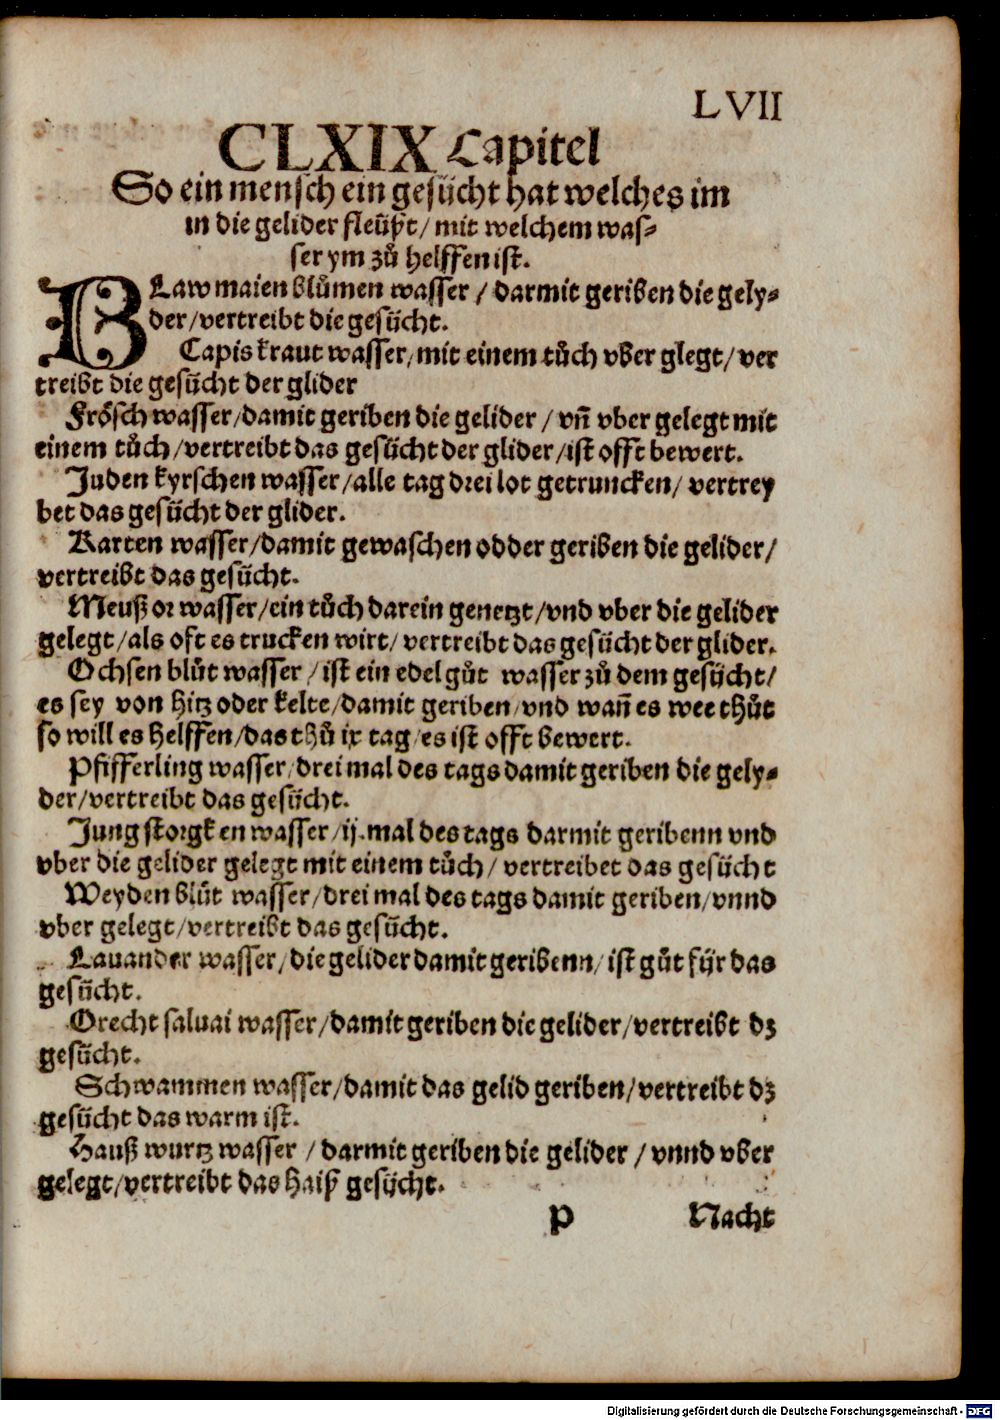 LVII
CLXIX Capitel
So ein mensch ein gesücht hat welches im
in die gelider fleüßt/ mit welchem was⸗
ser ym zů helffen ist.
BLaw maien blůmen wasser / darmit geriben die gely⸗
der/vertreibt die gesücht.
Capis kraut wasser/mit einem tůch vber glegt/ ver
treibt die gesücht der glider
Frösch wasser/damit geriben die gelider / vñ vber gelegt mit
einem tůch/vertreibt das gesücht der glider/ist offt bewert.
Juden kyrschen wasser/alle tag drei lot getruncken/ vertrey
bet das gesücht der glider.
Karten wasser/damit gewaschen odder geriben die gelider/
vertreibt das gesücht.
Meuß or wasser/ein tůch darein genetzt/vnd vber die gelider
gelegt/als oft es trucken wirt/ vertreibt das gesücht der glider.
Ochsen blůt wasser / ist ein edel gůt wasser zů dem gesücht/
es sey von hitz oder kelte/damit geriben/vnd wañ es wee thůt
so will es helffen/das thů ix tag/es ist offt bewert.
Pfifferling wasser/drei mal des tags damit geriben die gely⸗
der/vertreibt das gesücht.
Jung storgken wasser/ij.mal des tags darmit geribenn vnd
vber die gelider gelegt mit einem tůch/ vertreibet das gesücht
Weyden blůt wasser/drei mal des tags damit geriben/vnnd
vber gelegt/vertreibt das gesücht.
Lauander wasser/die gelider damit geribenn/ist gůt für das
gesücht.
Orecht saluai wasser/damit geriben die gelider/vertreibt dz
gesücht.
Schwammen wasser/damit das gelid geriben/vertreibt dz
gesücht das warm ist.
Hauß wurtz wasser / darmit geriben die gelider / vnnd vber
gelegt/vertreibt das haiß gesücht.
P Nacht
Digitalisierung gefördert durch die Deutsche Forschungsgemeinschaft - DFG